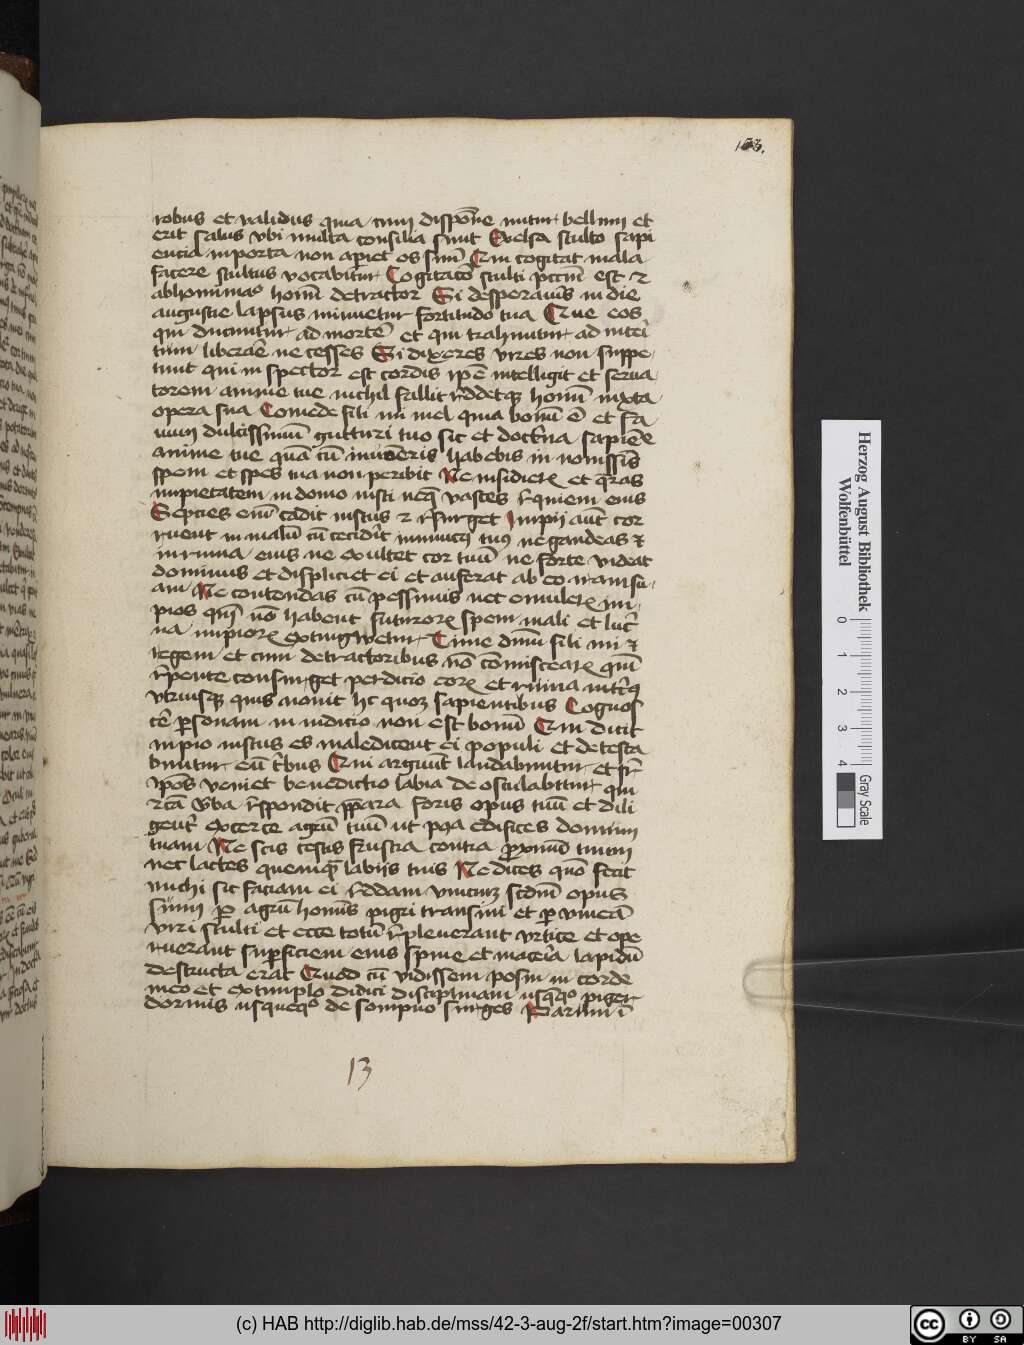 153.
robus et validus quia cum dispōne initur bellum et
erit salus vbi multa consilia sunt Excelsa stulto sapi
encia in porta non apiet os suū Qui cogitat mala
facere stultus vocabitur Cogitacō stulti pccm̄ est ⁊
abhominaᵒ homī detractor Si desperaūs in die
augustie lapsus minuetur fortitudo tua Erue eos
qui ducuntur ad mortē et qui trahuntur ad interi
tum liberare ne cesses Si dixeres vires non suppe
tunt qui inspector est cordis ipē intelligit et serua
torem anime tue nichil fallit r̄ddetqꝫ homī iuxta
opera sua Comede fili mi mel quia bonū ē et fa
uum dulcissimū gutturi tuo sic et doctⁱna sapiēe
anime tue quā cū inueneris habebis in nouissīs
spem et spes tua non peribit Ne insidierꝭ et q̄ras
impietatem in domo iusti neqꝫ vastes r̄quiem eius
Septies enī cadit iustus ⁊ r̄surget Impii aūt cor
ruent in malū cū ceciderit inimicꝰ tuꝰ ne gaudeas ⁊
in ruina eius ne exultet cor tuū ne forte videat
dominus et displiciet ei et auferat ab eo iram su
am Ne contendas cū pessimis nec emulerꝭ im
pios qm̄ nō habent futurorꝝ spem mali et luc̄
na impiorꝝ extingwetur Time dm̄ fili mi ⁊
regem et cum detractoribus nō cōmiscearꝭ qm̄
r̄pente consurget perdicio eorꝝ et ruina utriꝰqꝫ
vtriusqꝫ quis nouit hc quoqꝫ sapientibus Cognos
cē ꝑsonam in iudicio non est bonū Qui dicit
inpio iustus es maledicent ei populi et detesta
buntur eū t̄bus Qui arguūt laudabuntur et sr̄
ipōs veniet benedictio labia deosculabitur qui
rc̄a ūba r̄spondit p̄para foris opus tuū et dili
geut̄ exerce agrū tuū ut pꝰa edifices domum
tuam Ne scis testis frustra contra ꝓximū tuum
nec lactes quemqꝫ labiis tuis Ne dices quō fecit
michi sic faciam ei r̄ddam vnicuiqꝫ scdm̄ opus
suum ꝑ agrū homīs pigri transiui et ꝑ vineā
viri stulti et ecce totū r̄pleuerant vrtice et ope
ruerant suꝑficiem eius spine et maceria lapidū
destructa erat Quod cū vidissem posui in corde
meo et exemplo didici disciplinam usqꝫquo piger
dormis usqꝫquo de sompno surges Parum ī
13
Herzog August Bibliothek
Wolfenbüttel
0 1 2 3 4
Gray Scale
(c) HAB http://diglib.hab.de/mss/42-3-aug-2f/start.htm?image=00307
cc BY SA